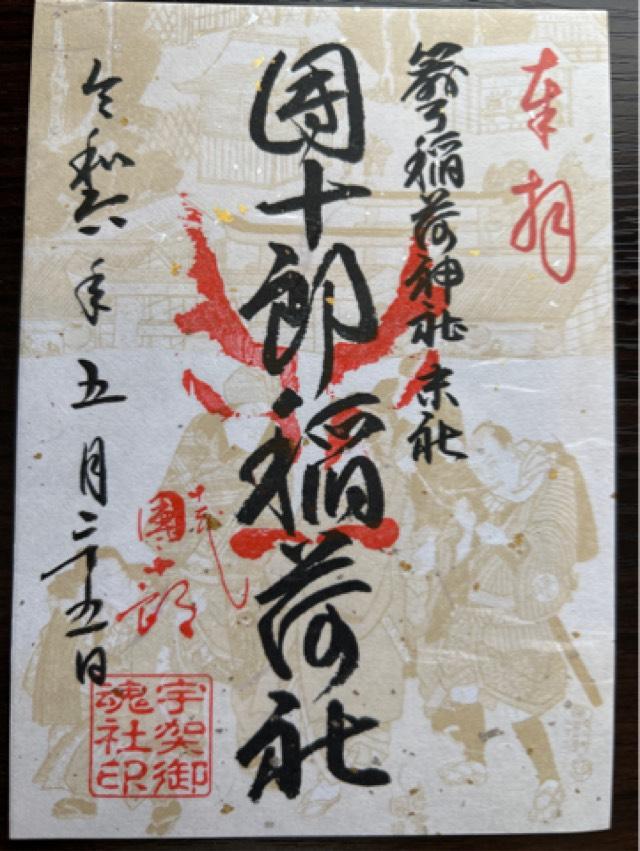 奉拝
箭弓稲荷神社末社
團十郎稲荷社
十二代
團十郎
宇迦御
魂社印
令和六年五月二十五日